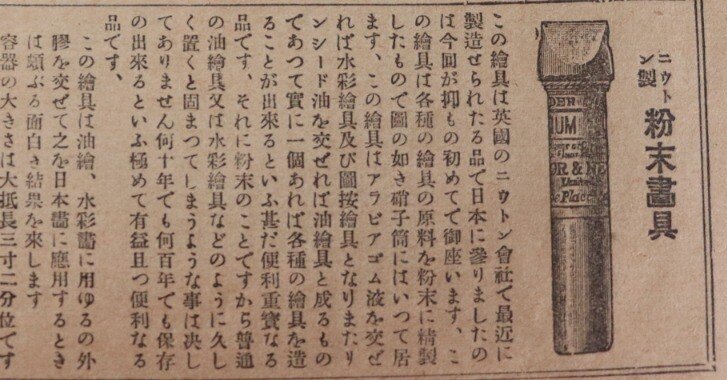 ニウト
ン製
粉末畫具
UM
OR & NE
e Place
この繪具は英國のニウトン會社で最近に
製造せられたる品で日本に參りましたの
は今回が抑もの初めてで御座います、こ
の繪具は各種の繪具の原料を粉末に精製
したもので圖の如き硝子筒にはいつて居
ます、この繪具はアラビアゴム液を交ぜ
れば水彩繪具及び圖按繪具となりまたリ
ンシード油を交ぜれば油繪具と成るもの
であつて實に一個あれば各種の繪具を造
ることが出來るといふ甚だ便利重寳なる
品です、それに粉末のことですから普通
の油繪具又は水彩繪具などのように久し
く置くと固まつてしまうような事は決し
てありません何十年でも何百年でも保存
の出來るといふ極めて有益且つ便利なる
品です、
この繪具は油繪、水彩畫に用ゆるの外
膠を交ぜて之を日本畫に應用するとき
は頗ぶる面白き結果を來します
容器の大きさは大抵長三寸二分位です